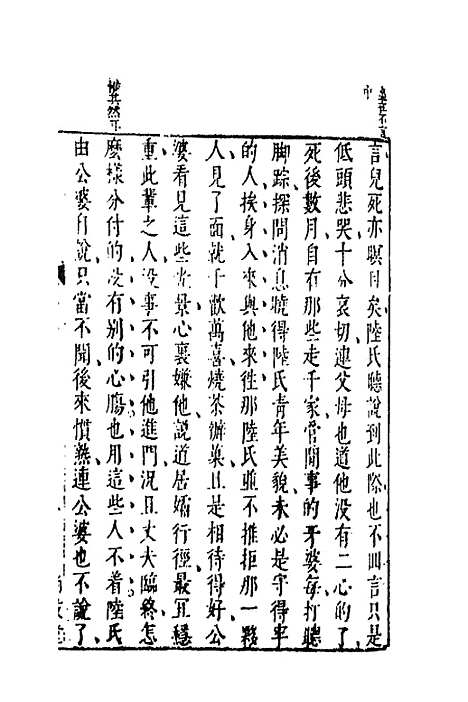 言兒死亦瞑目矣陸氏聽說到此際也不回言只是
低頭悲哭十分哀切連父母也道他沒有二心的了
死後數月自有那些走千家管閒事的牙婆每打聽
脚踪探問消息曉得陸氏青年美貌未必是守得牢
的人挨身入來與他來往那陸氏並不推拒那一夥
人見了面就千歡萬喜燒茶辦菓且是相待得好公
婆看見這些光景心裏嫌他說道居孀行徑最宜穩
重此輩之人沒事不可引他進門况且丈夫臨終怎
麽樣分付的沒有別的心腸也用這些人不着陸氏
由公婆自說只當不聞後來慣熟連公婆也不說了